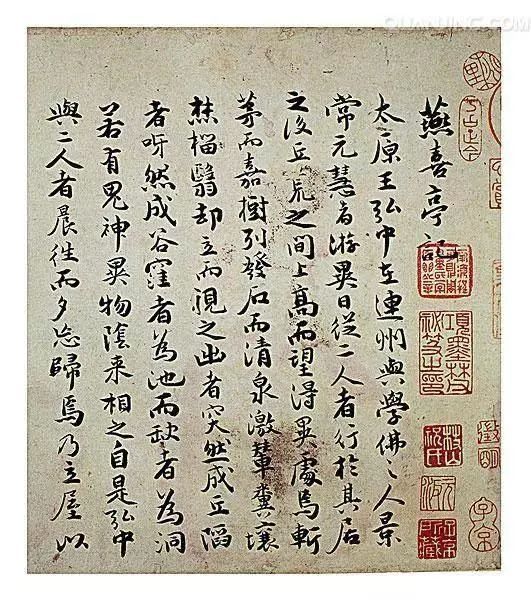 QUANJING.COM
燕喜亭記
太原王弘中在連州與學佛之人景
常元慧者游異日從二人者行於其居
之後丘荒之間上高而望得異處焉斬
茅而嘉樹列發石而清泉激輦糞壤
焚榴翳却立而視之出者突然成丘陷
者呀然成谷窪者為池而缺者為洞
若有鬼神異物陰来相之自是弘中
與二人者晨往而夕忘歸焉乃立屋以
項墨林祕笈之印